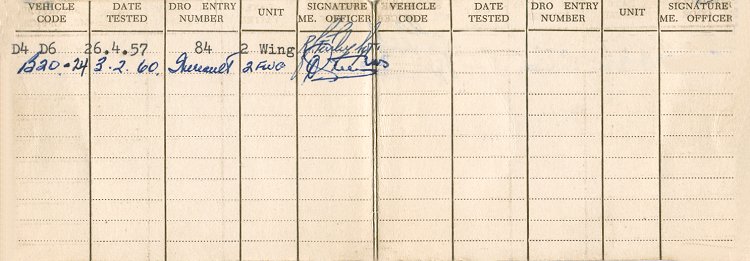 VEHICLE CODE DATE TESTED DRO ENTRY NUMBER UNIT SIGNATURE ME. OFFICER VEHICLE CODE DATE TESTED DRO ENTRY NUMBER UNIT SIGNATURE ME. OFFICER
D4 D6 26.4.57 84 2 Wing
B20-24 3.2.60.